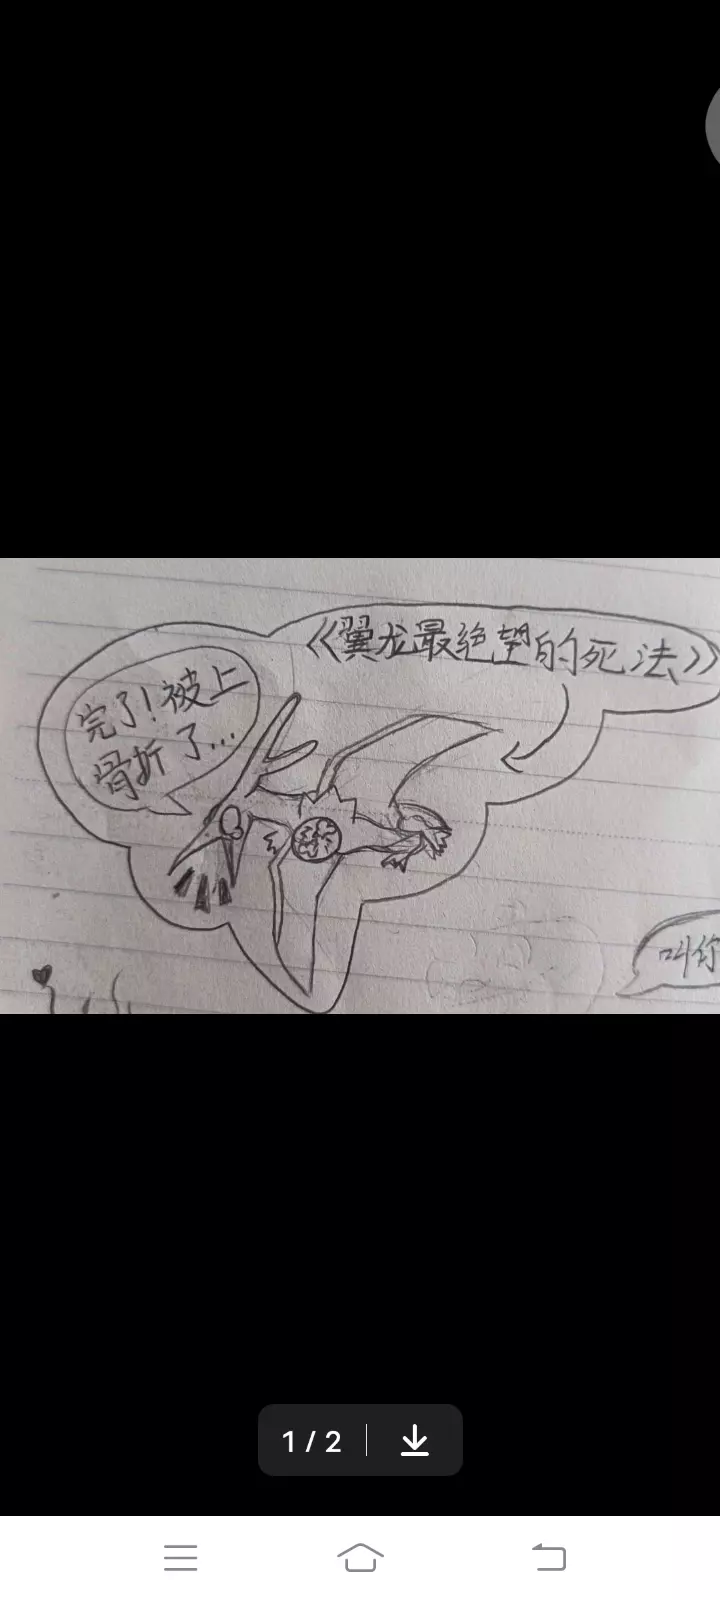 《翼龙最绝望的死法》
完了！被上
骨折了...
叫你
1 / 2